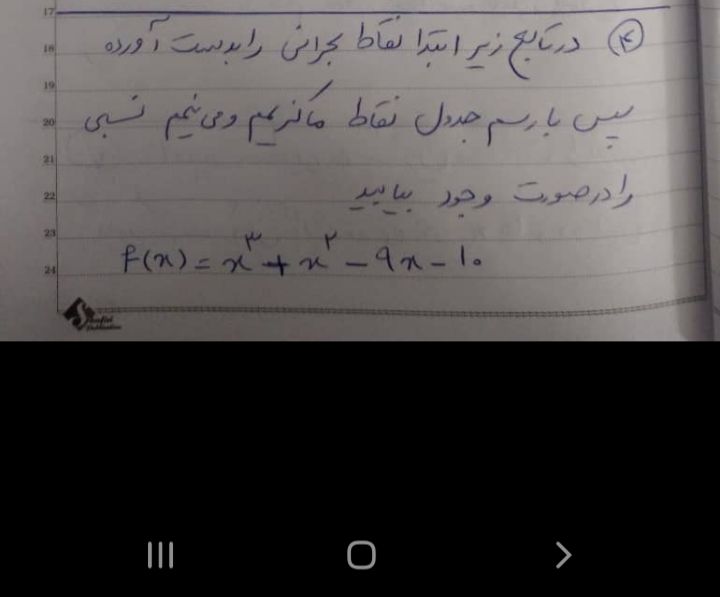 17
18
19
20
21
22
23
24
۴ در تابع زیر ابتدا نقاط بحرانی را بدست آورده
سپس با رسم جدول نقاط ماکزیمم و می نیمم نسبی
را در صورت وجود بیابید
f(x) = x^۳ + x^۲ - ۹x - ۱۰